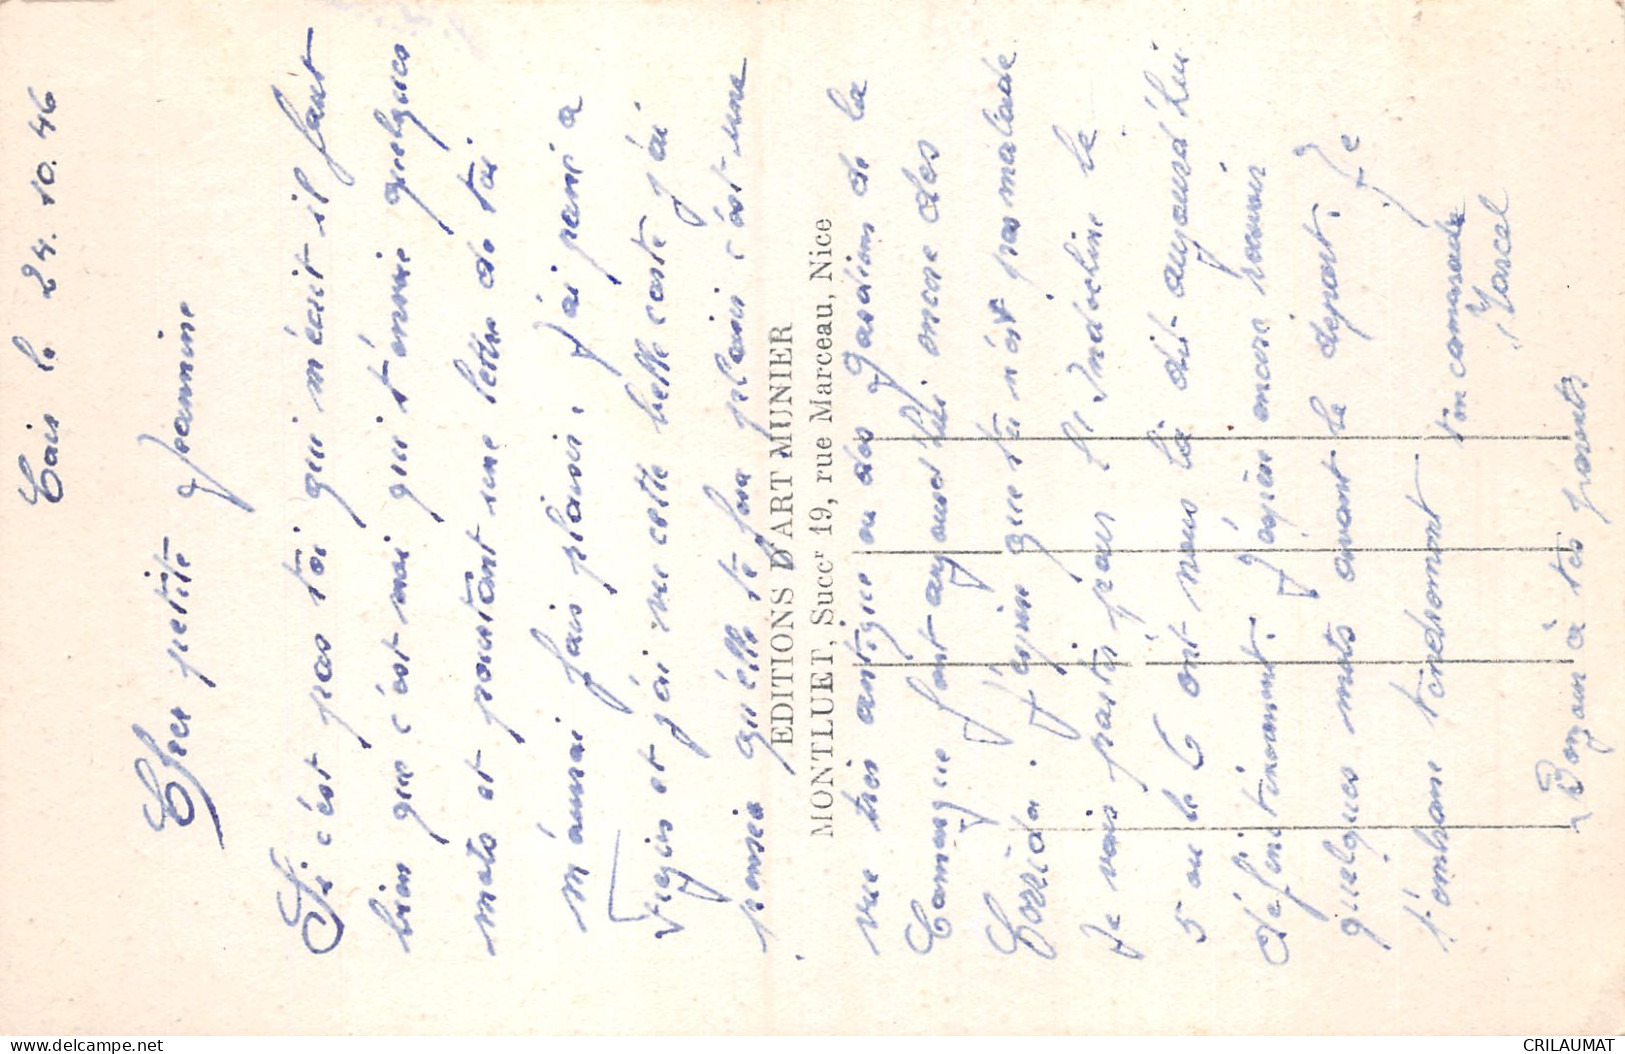 le 24.10.46
Cher petite Jeannine
Si c'est pas toi qui m'écrit il faut
bien que c'est moi qui t'envoie quelques
mots et pourtant une lettre de toi
m'aurai fais plaisir. J'ai parti a
et j'ai vue cette belle carte j'ai
pensée qu'elle te fera plaisir c'est une
vue très antique ou des Gardians de la
Camargue font aujourd'hui encore des
Corrida. J'espère que tu n'est pas malade
Je vais partir pour l'Indochine le
5 ou le 6 ont nous la dit aujourd'hui
définitivement. J'éspère encore recevoir
quelques mots avant le départ. Je
t'embrasse tendrement ton camarade
Marcel
Bonjour à tes parents
EDITIONS D'ART MUNIER
MONTLUET, Succr 19, rue Marceau, Nice
CRILAUMAT